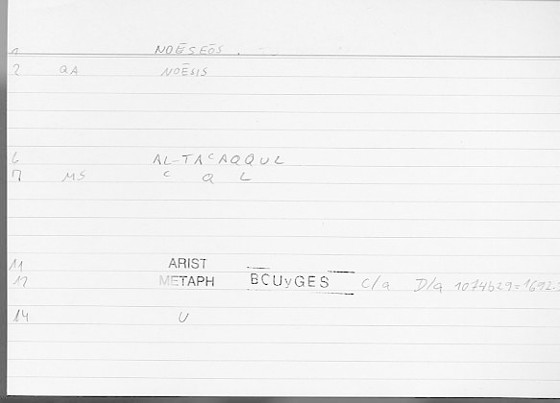 1 NOĒSEŌS .
2 QA NOĒSIS
6 AL-TAᶜAQQUL
7 MS ᶜ Q L
11 ARIST
12 METAPH BCUyGES C/a D/a 1074b29=1692.
14 U